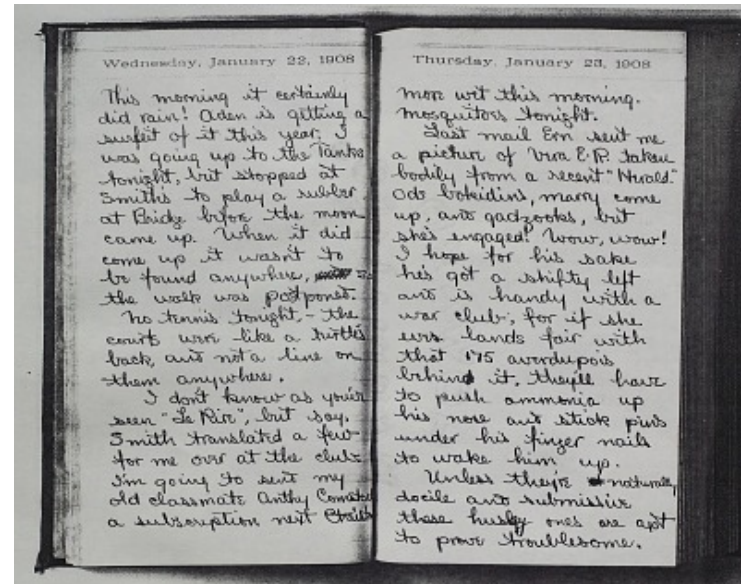 Wednesday, January 22, 1908
This morning it certainly
did rain! Aden is getting a
surfeit of it this year. I
was going up to the Tanks
tonight, but stopped at
Smiths to play a rubber
at Bridge before the moon
came up. When it did
come up it wasn't to
be found anywhere, so
the walk was postponed.
No tennis tonight, - the
courts were like a turtle's
back, and not a line on
them anywhere.
I don't know as you've
seen "Le Rire", but say.
Smith translated a few
for me over at the club.
I'm going to send my
old classmate Anthy Comstock
a subscription next Christ
Thursday, January 23, 1908
more wet this morning.
Mosquitors tonight.
Last mail Ern sent me
a picture of Vera E.P. taken
bodily from a recent "Herald."
Ods bokidins, marry come
up, and gadzooks, but
she's engaged! Wow, wow!
I hope for his sake
he's got a shifty left
and is handy with a
war club, for if she
ever lands fair with
that 175 avordupois
behind it, they'll have
to push ammonia up
his nose and stick pins
under his finger nails
to wake him up.
Unless they're naturally
docile and submissive
these husky ones are apt
to prove troublesome.